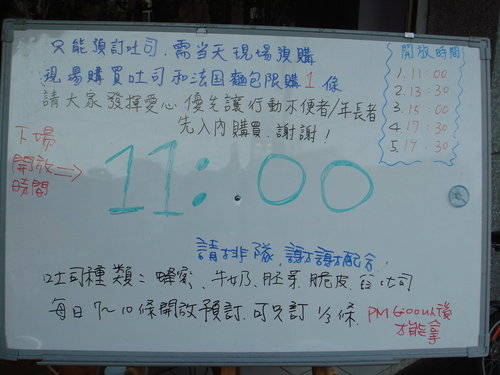 只能預訂吐司.需當天現場預購
現場購買吐司和法國麵包限購1條
請大家發揮愛心優先讓行動不便者/年長者
先入內購買.謝謝!
開放時間
1.11:00
2.13:30
3.15:00
4.17:30
5.19:30
下場
開放⇒
時間
11:00
請排隊,謝謝配合,
吐司種類:蜂蜜、牛奶、胚芽、脆皮、吐司
每日7~10條開放預訂.可只訂1/3條.
PM6:00以後
才能拿